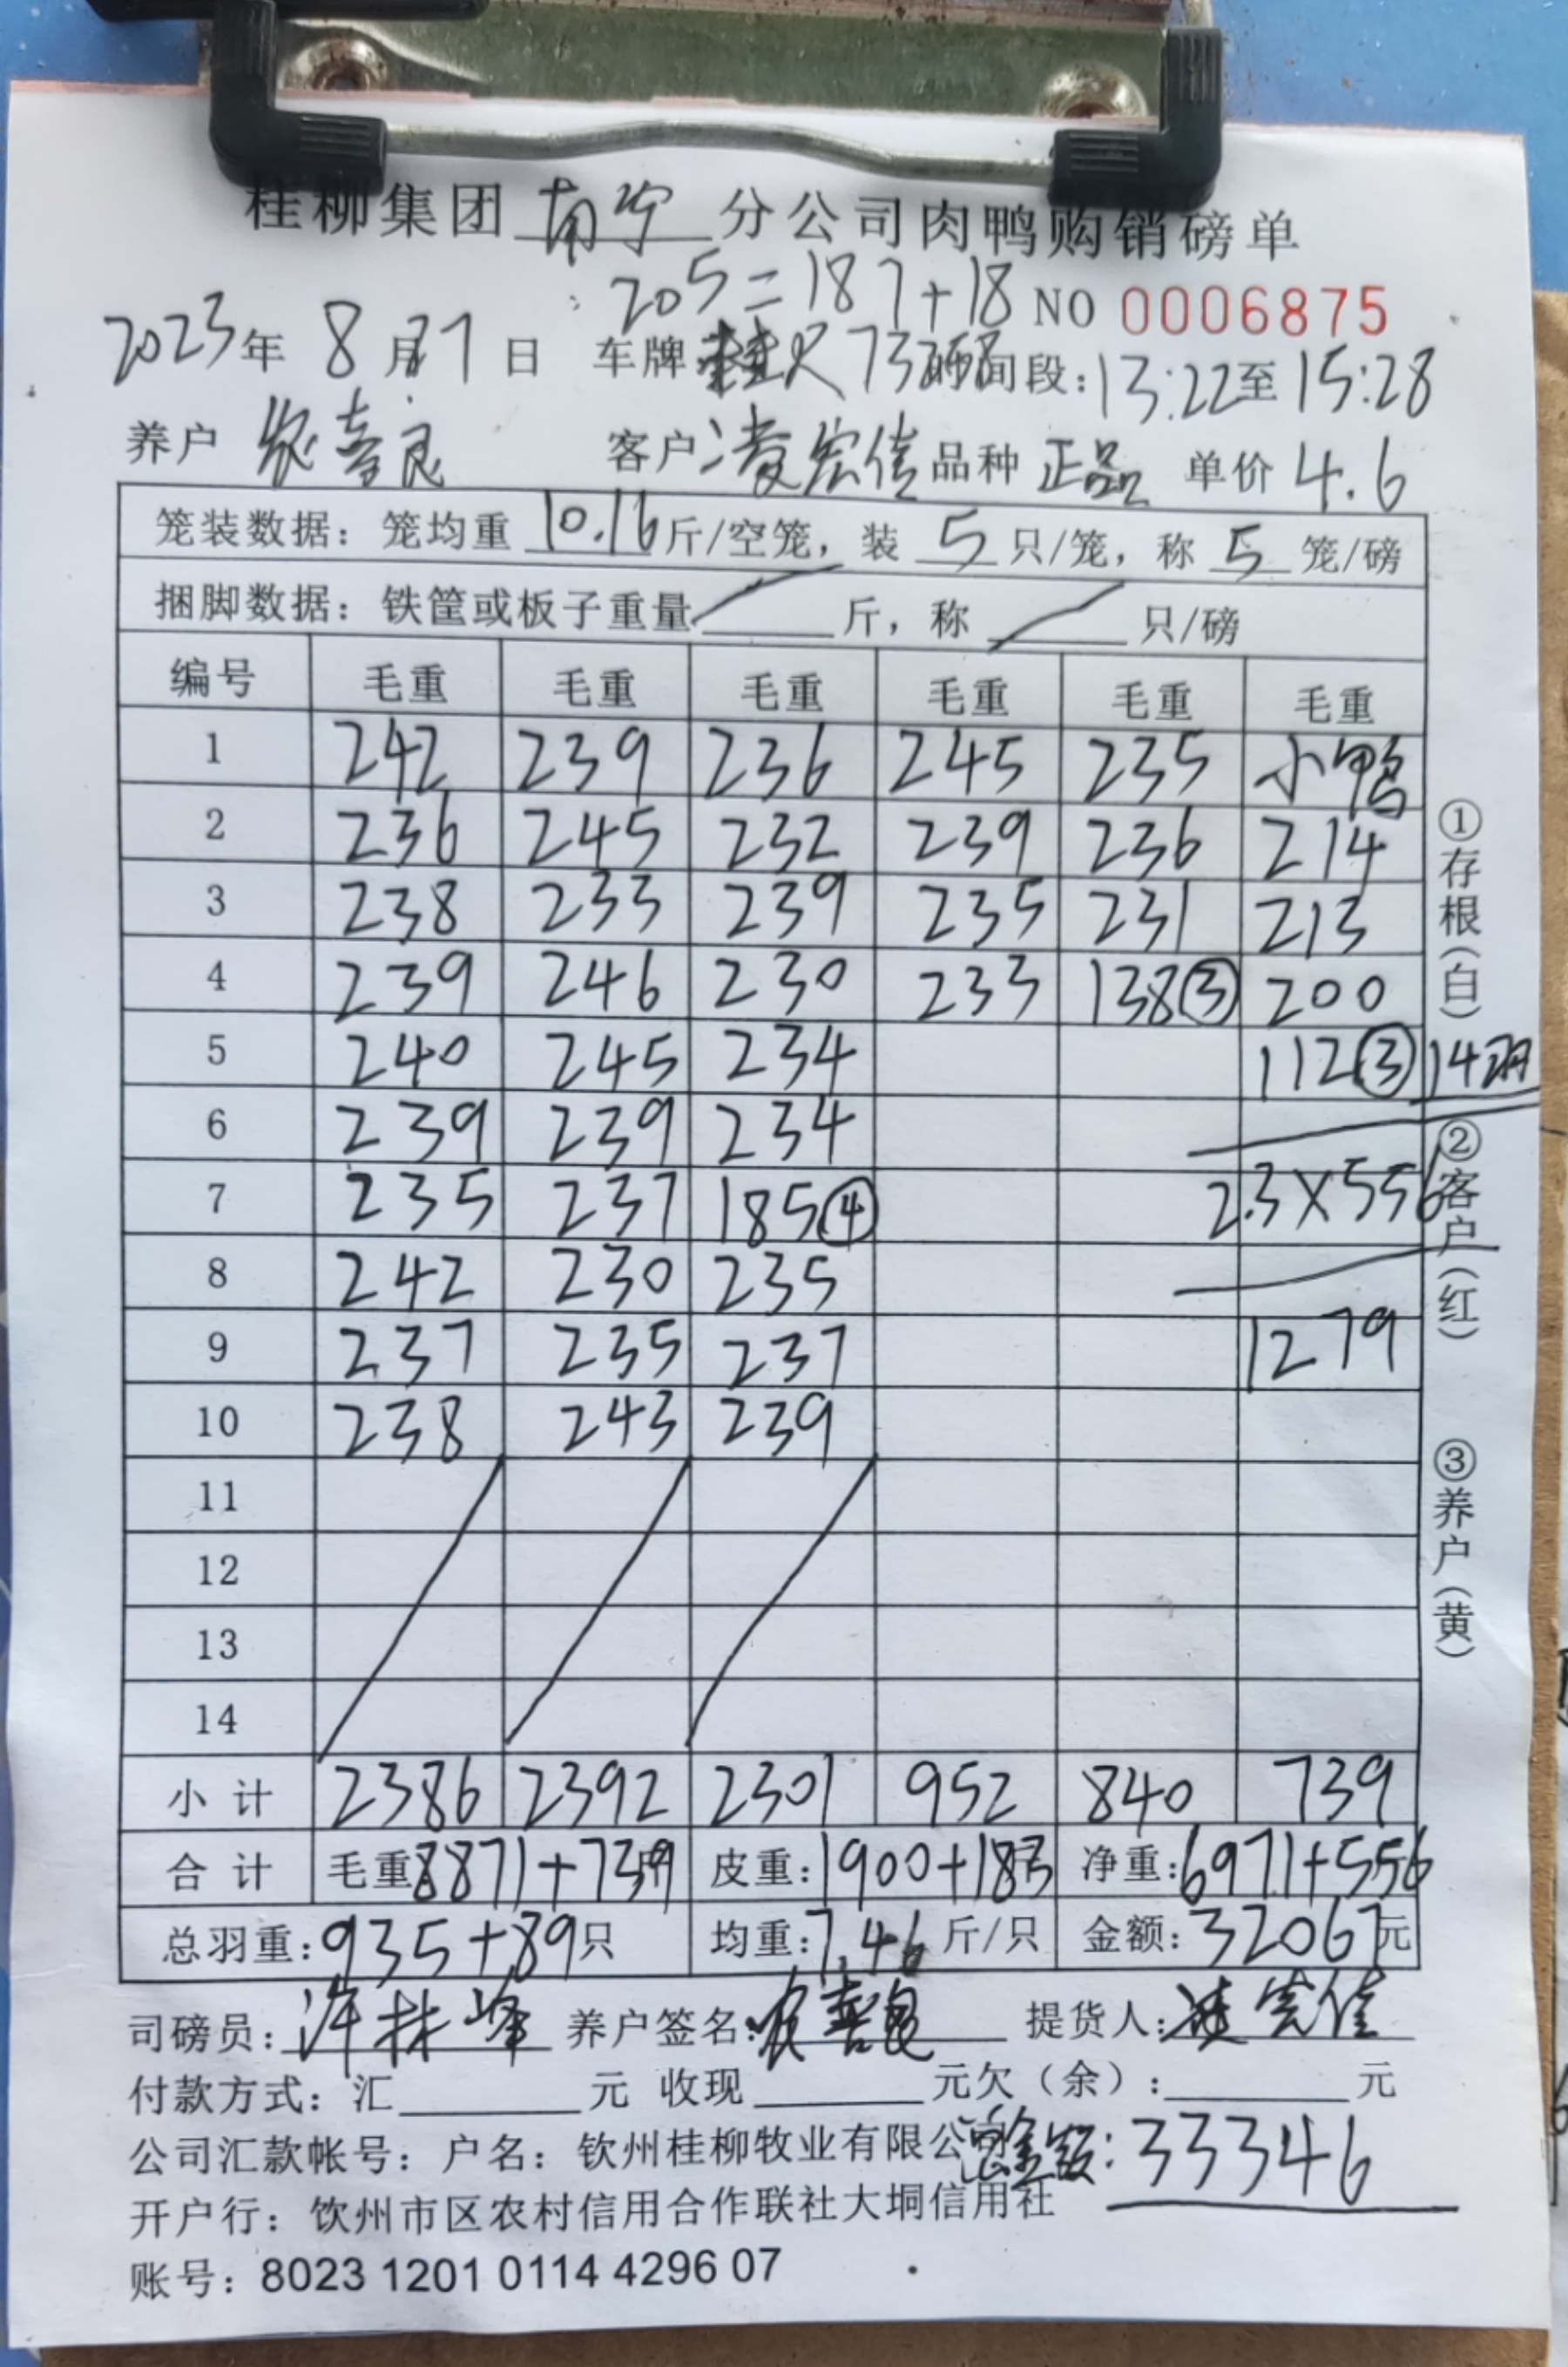 桂柳集团 南宁 分公司肉鸭购销磅单
205=187+18 NO 0006875
2023年 8月27日 车牌 时间段:13:22至15:28
养户 农喜良 客户 凌宏信 品种 正品 单价 4.6
笼装数据: 笼均重 10.16斤/空笼, 装 5 只/笼, 称 5 笼/磅
捆脚数据: 铁筐或板子重量 斤, 称 只/磅
编号 毛重 毛重 毛重 毛重 毛重 毛重
1 242 239 236 245 235 小鸭
2 236 245 232 239 236 214
3 238 233 239 235 231 213
4 239 246 230 233 138③ 200
5 240 245 234 112③
6 239 239 234
7 235 237 185④ 2.3×556
8 242 230 235
9 237 235 237 1279
10 238 243 239
11
12
13
14
小计 2386 2392 2301 952 840 739
合计 毛重:8871+739 皮重:1900+183 净重:6971+556
总羽重:935+89只 均重:7.46 斤/只 金额:32067元
司磅员: 养户签名:农喜良 提货人:凌宏信
付款方式: 汇 元 收现 元欠(余): 元
公司汇款帐号: 户名: 钦州桂柳牧业有限公司 总金额:33346
开户行: 饮州市区农村信用合作联社大垌信用社
账号: 8023 1201 0114 4296 07
①存根(白)
②客户(红)
③养户(黄)